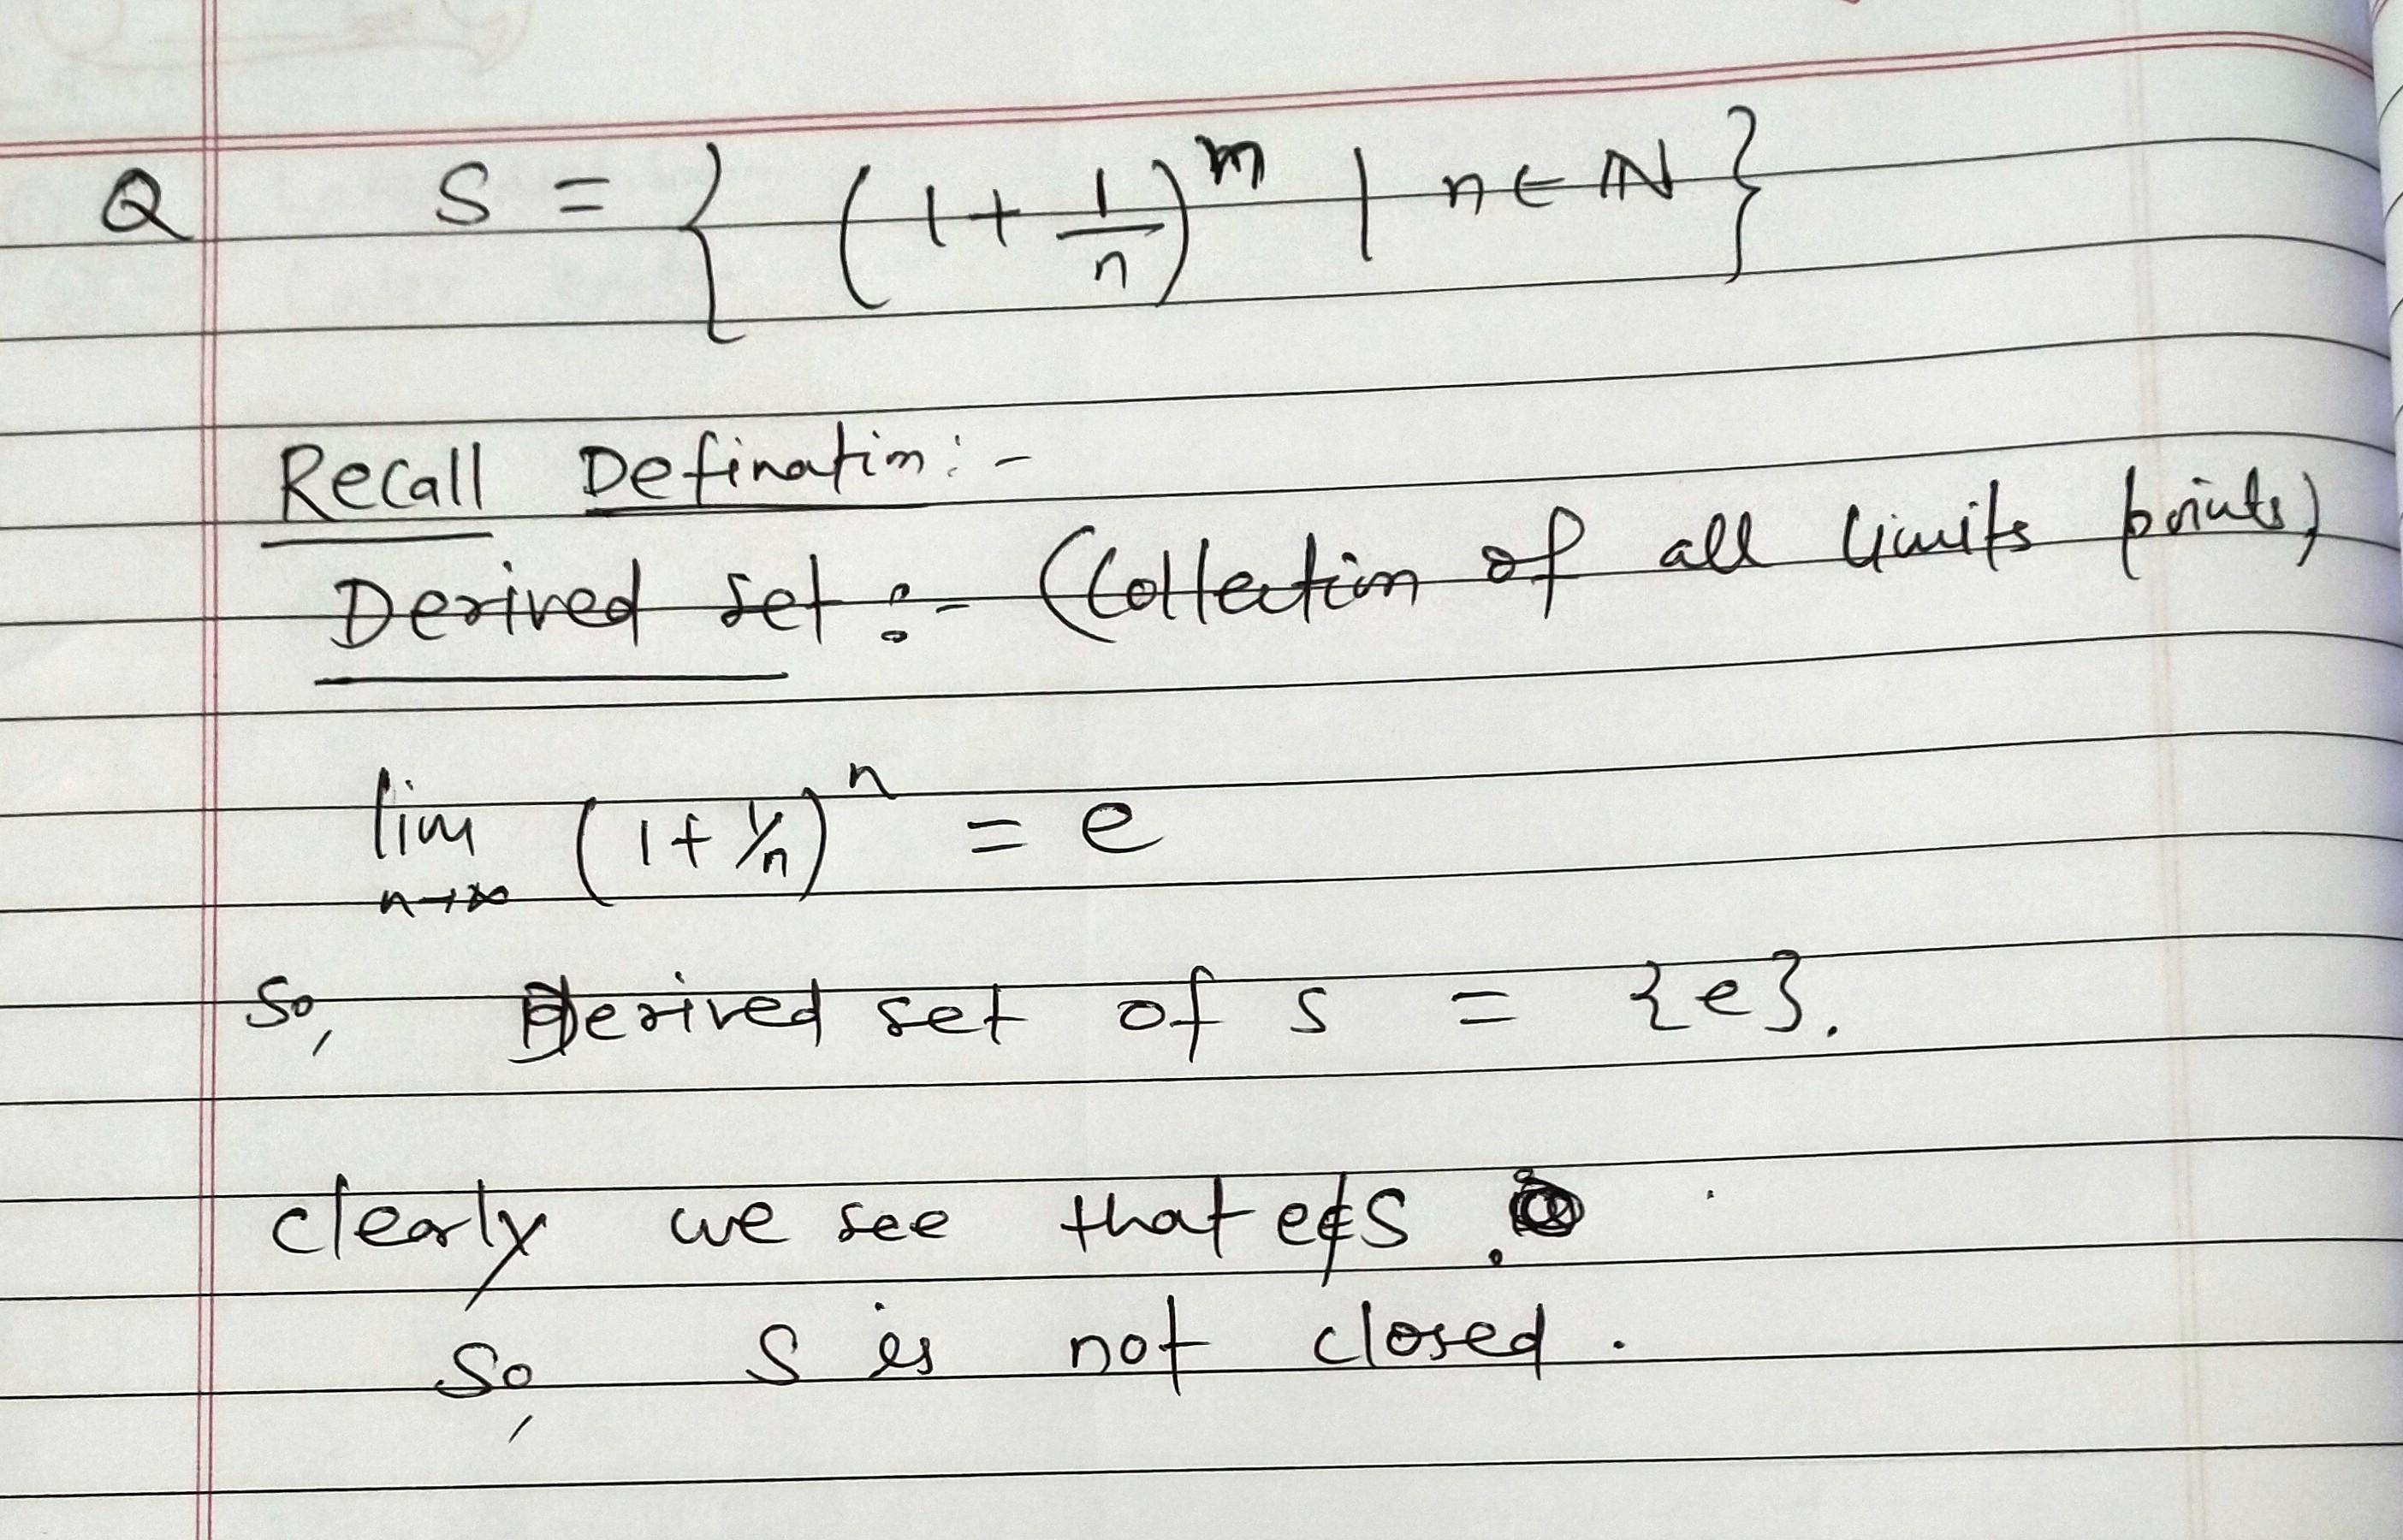 Q S = { (1 + 1/n)^m | n ∈ ℕ }
Recall Defination:-
Derived set :- (Collection of all limits points)
lim n→∞ (1 + 1/n)^n = e
So, Derived set of S = {e}.
clearly we see that e∉S.
So, S is not closed.